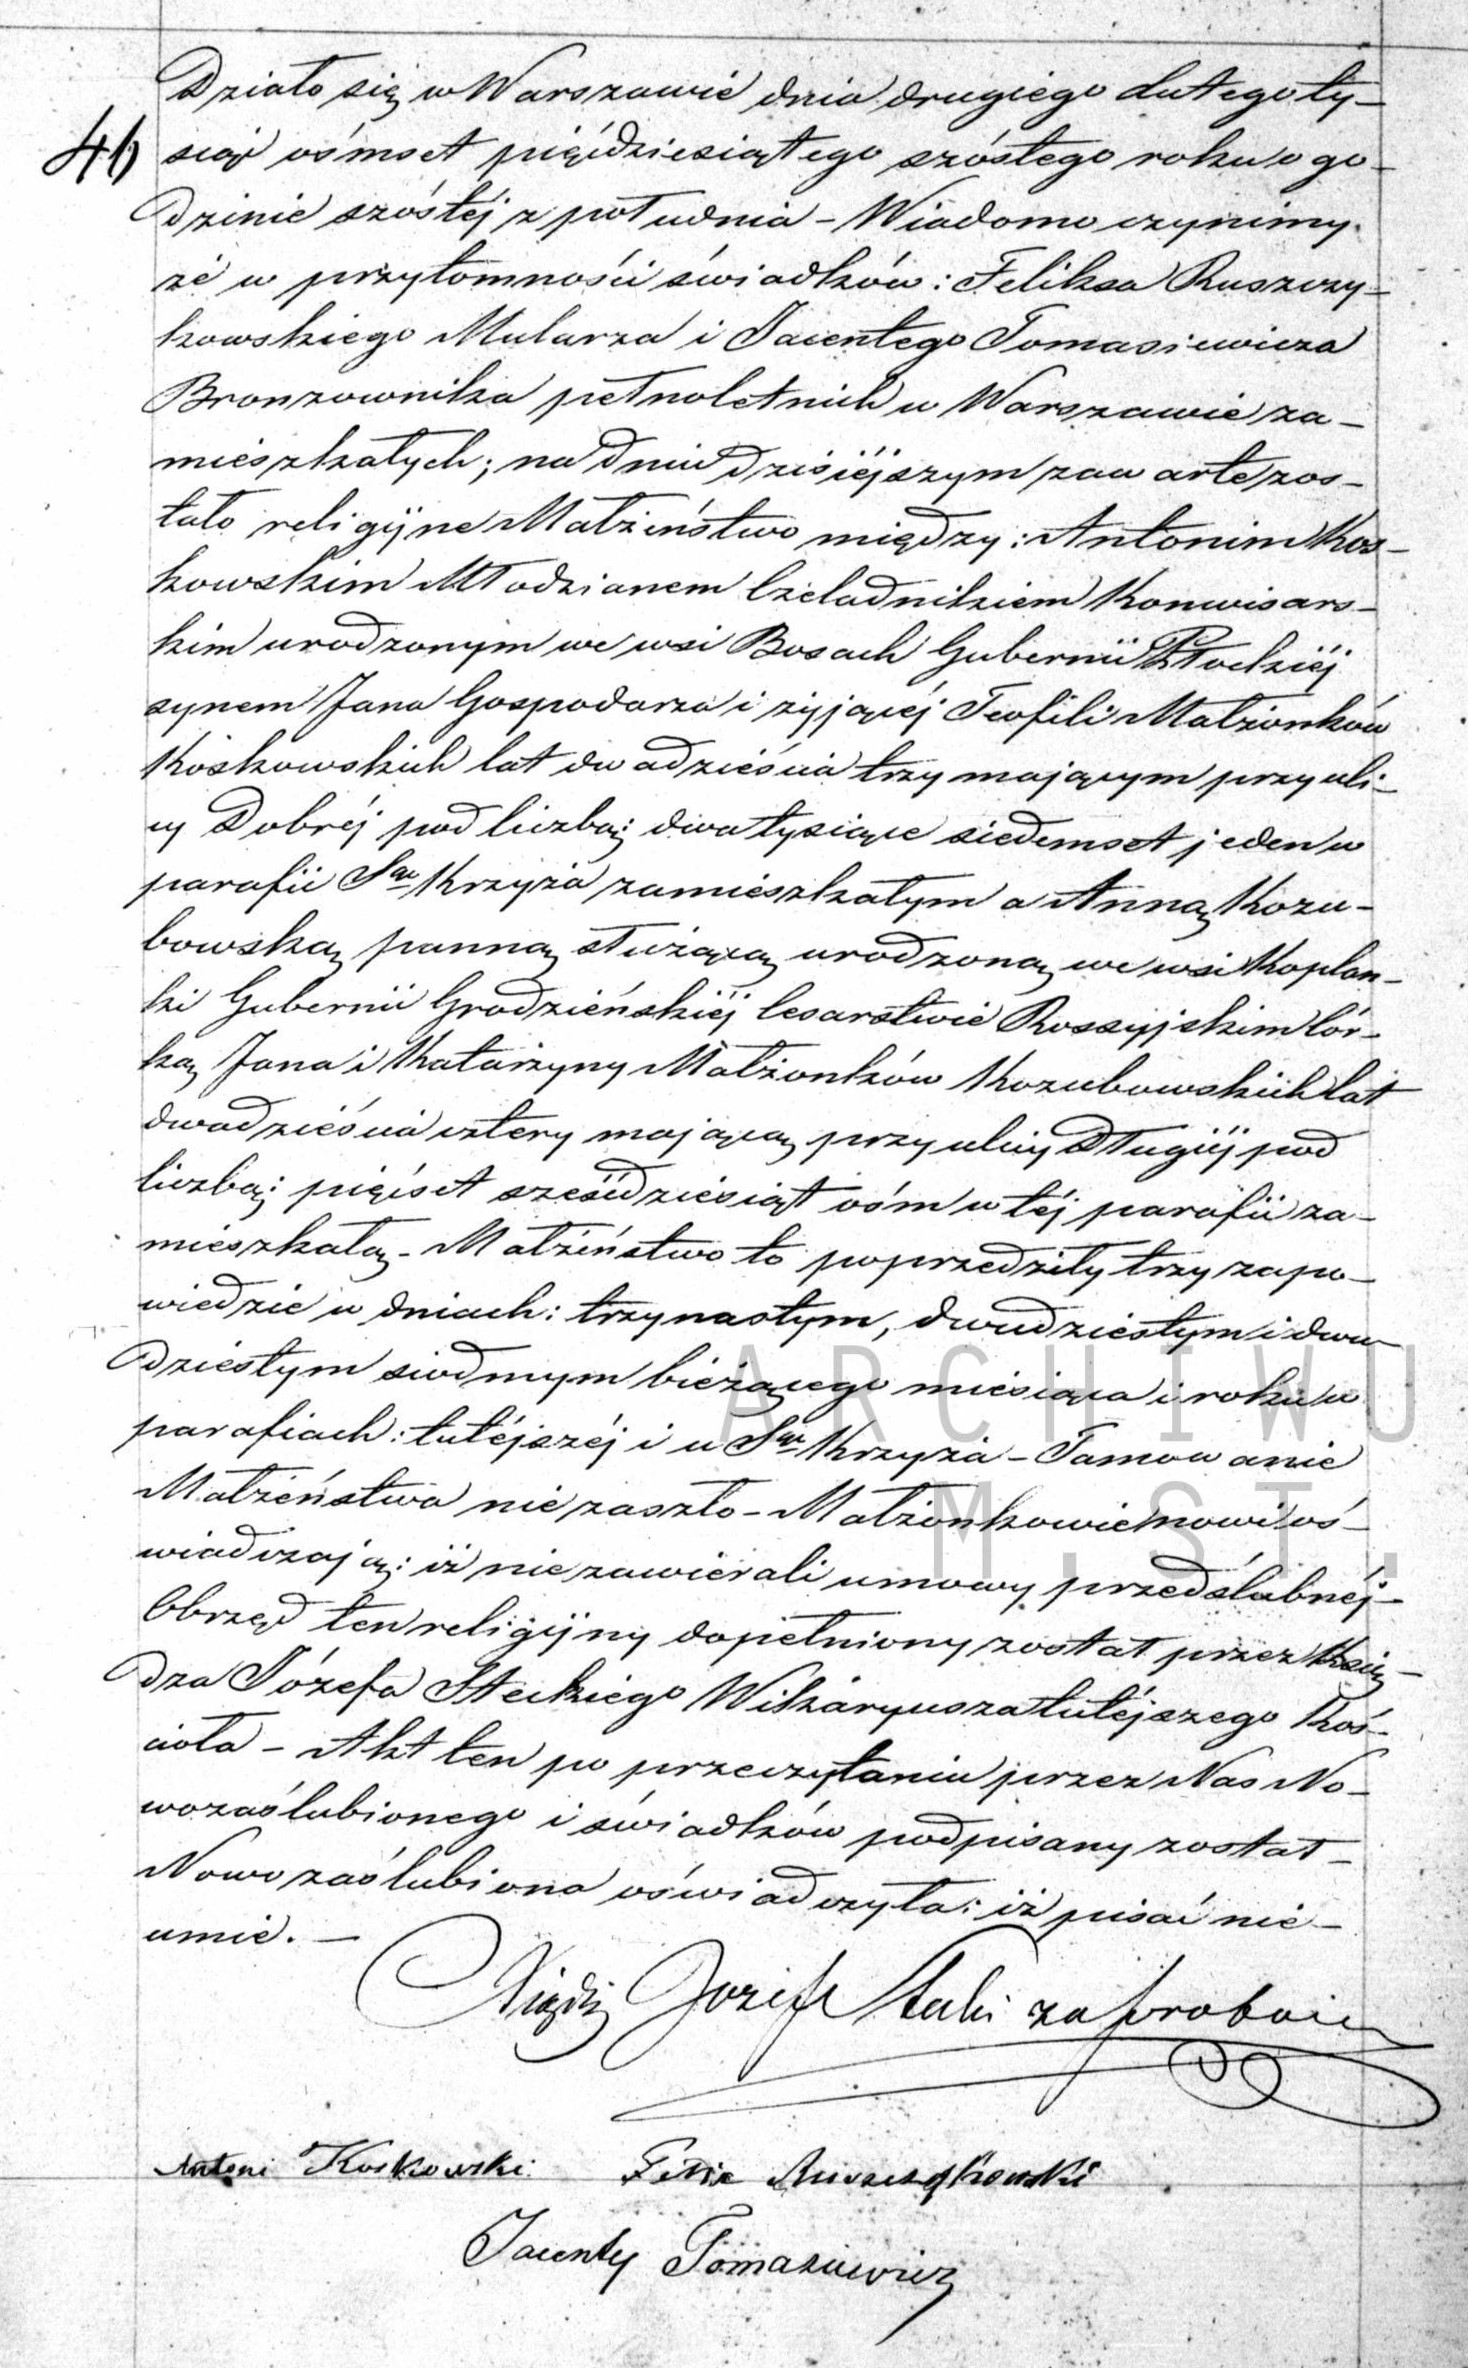 Działo się w Warszawie dnia drugiego lutego ty-
46 siąc ośmset pięćdziesiątego szóstego roku o go-
dzinie szóstej z południa - Wiadomo czynimy
że w przytomności świadków: Feliksa Ruszczy-
kowskiego Mularza i Jacentego Tomasiewicza
Bronzownika pełnoletnich w Warszawie za-
mieszkałych; na dniu dzisiéjszym zawarte zos-
tało religijne Małżeństwo między: Antonim Kos-
kowskim Młodzianem Czeladnikiem Konwisars-
kim urodzonym we wsi Bosach Gubernii Płockiéj
synem Jana Gospodarza i żyjącéj Teofili Małżonków
Koskowskich lat dwadzieścia trzy mającym przy uli-
cy Dobréj pod liczbą: dwa tysiące siedemset jeden w
parafii Sw Krzyża zamieszkałym a Anną Kozu-
bowską panną służącą urodzoną we wsi Koplan-
ki Gubernii Grodzieńskiéj Cesarstwie Rossyjskim Cór-
ką Jana i Katarzyny Małżonków Kozubowskich lat
dwadzieścia cztery mającą przy ulicy Długiéj pod
liczbą: pięćset sześćdziesiąt ośm w téj parafii za-
mieszkałą - Małżeństwo to poprzedziły trzy zapo-
wiedzie w dniach: trzynastym, dwudziestym i dwu-
dziestym siódmym bieżącego miesiąca i roku w
parafiach: tutéjszéj i u Sw Krzyża - Tamowanie
Małżeństwa nie zaszło - Małżonkowie nowi oś-
wiadczają: iż nie zawiérali umowy przedślubnéj -
Obrzęd ten religijny dopełniony został przez Księ-
dza Józefa Steckiego Wikaryusza tutéjszego Koś-
cioła - Akt ten po przeczytaniu przez Nas No-
wozaślubionego i świadków podpisany został -
Nowozaślubiona oświadczyła: iż pisać nie -
umie. -
Ksiądz Józef Stecki za proboszcza
Antoni Koskowski Felix Ruszczykowski
Jacenty Tomasiewicz
ARCHIWU
M. ST.